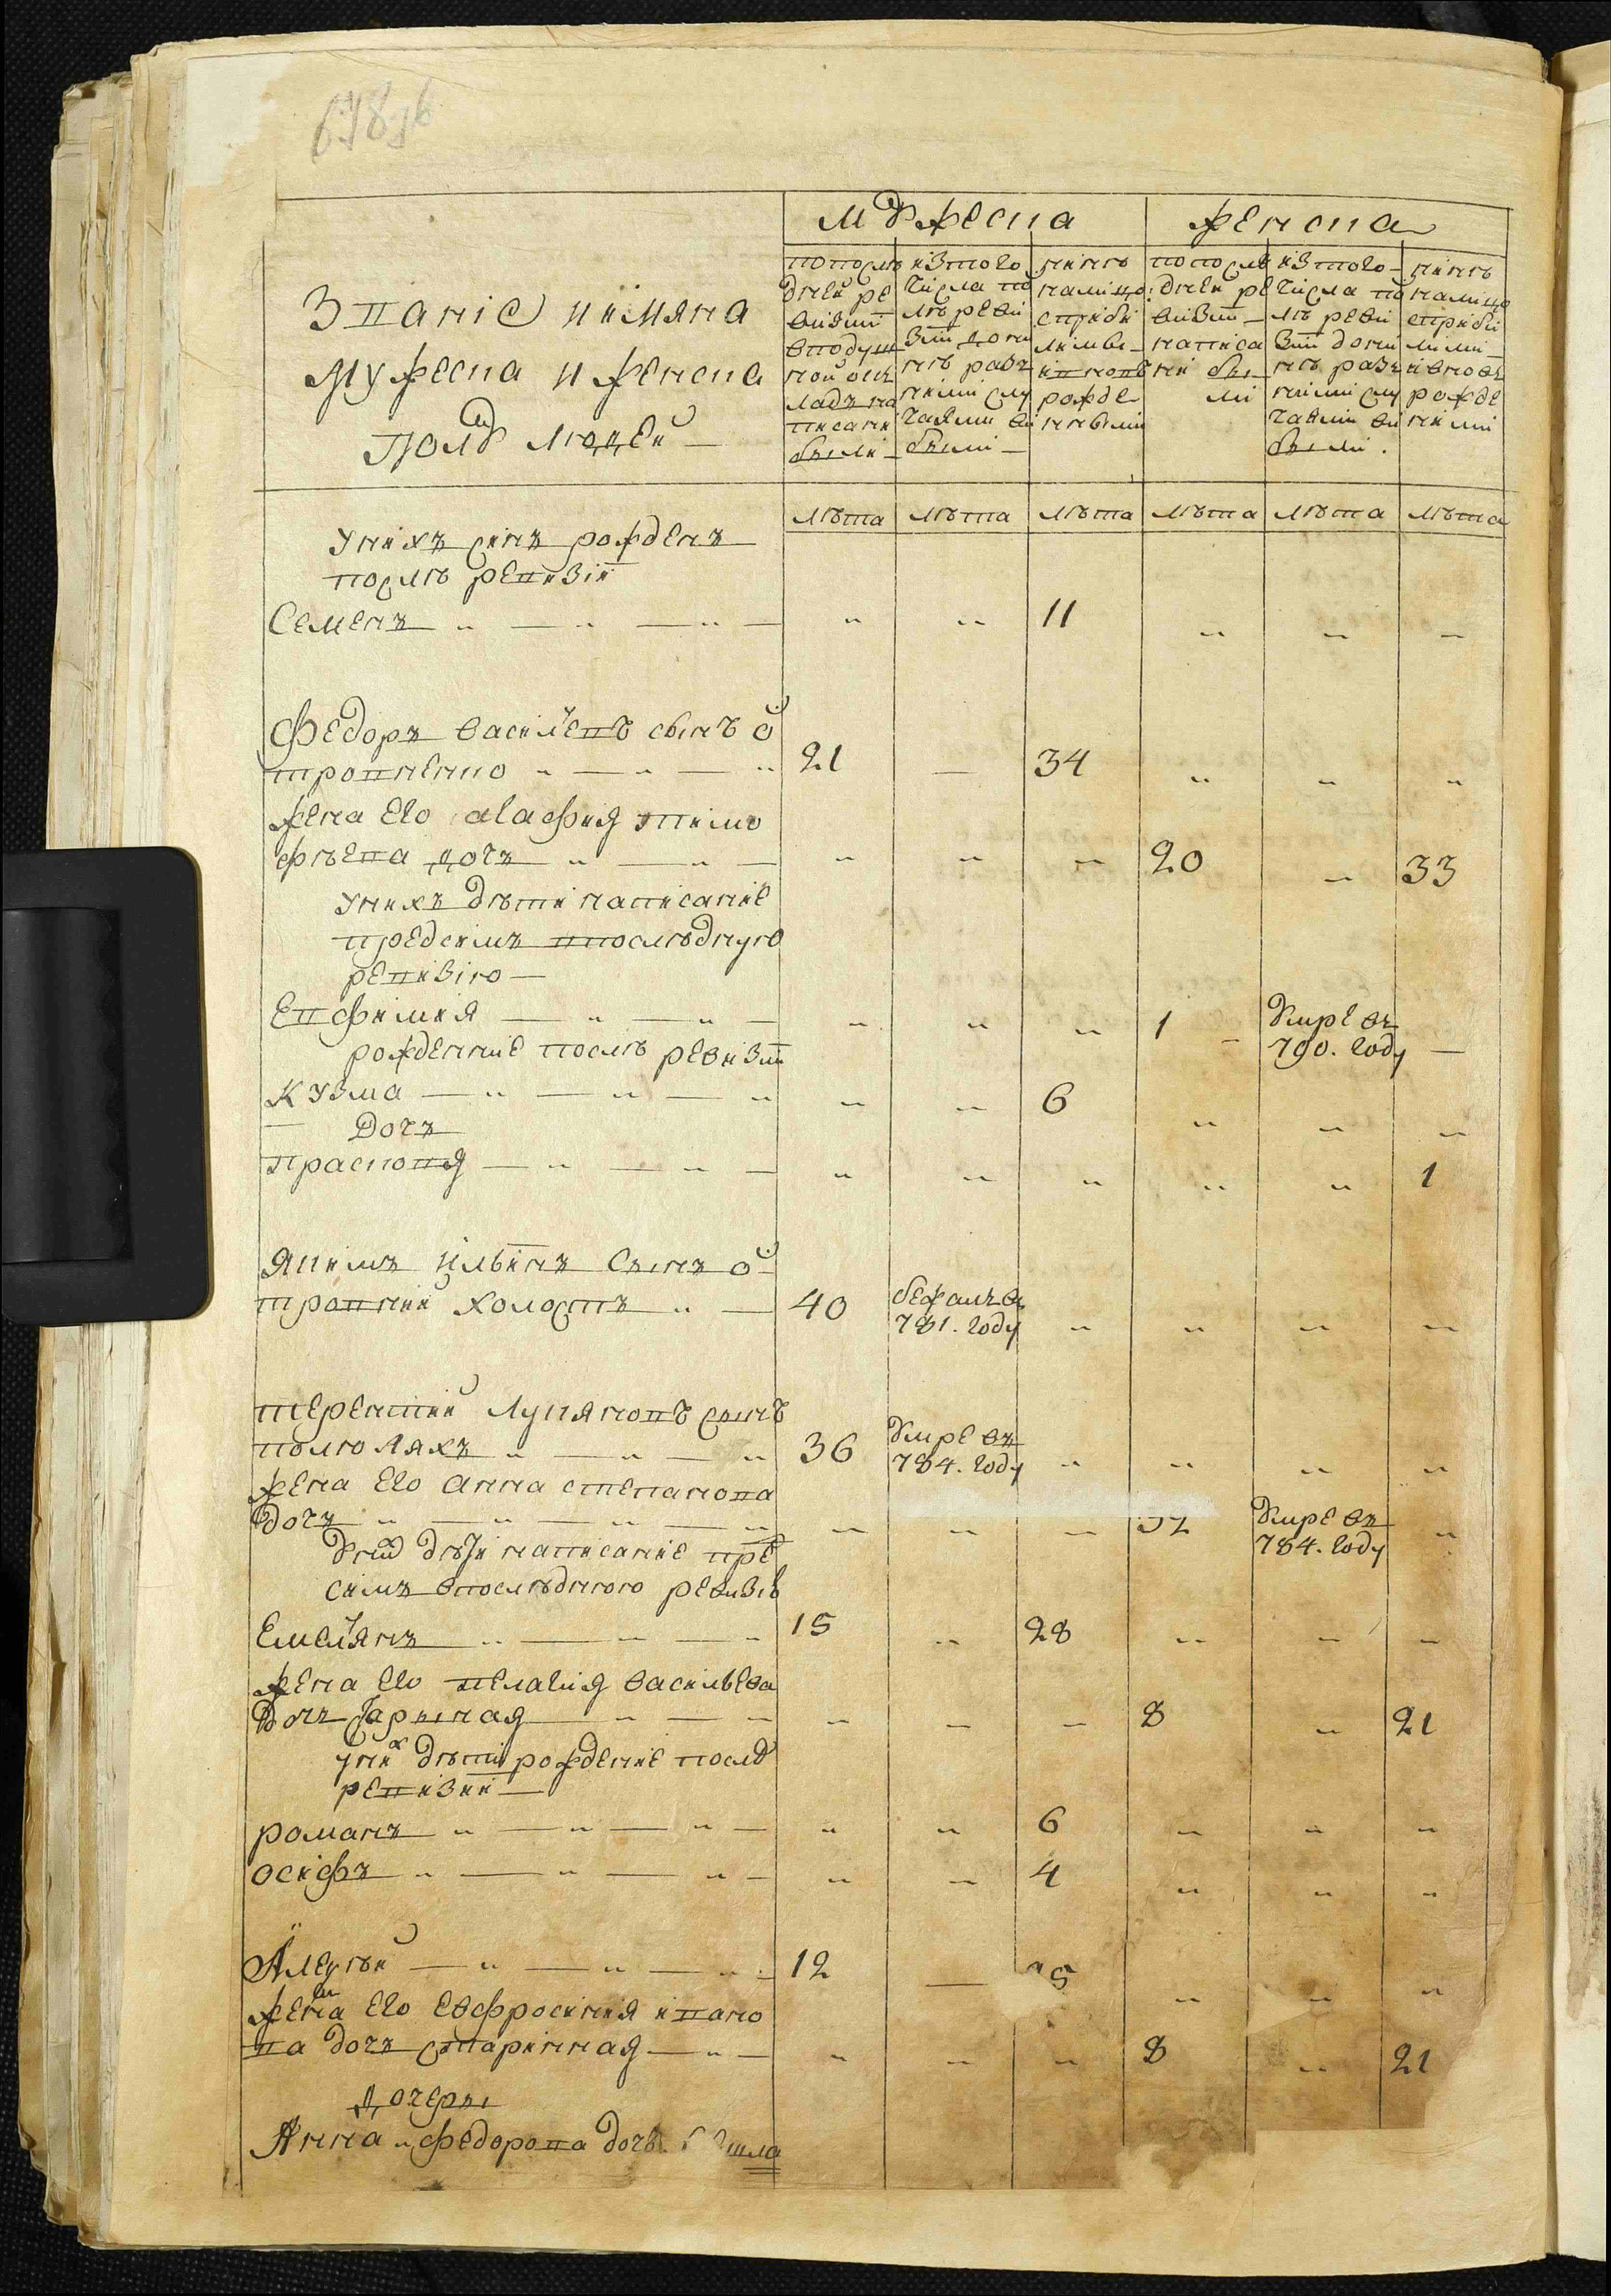 678 об
Званіе и имяна
мужеска и женска
полу людей
Мужеска
женска
попослѣ
дней ре
визіи
вподуш
ной ок
ладъ на
писани
были
изтого
числа по
слѣ реви
зіи до ны
нѣ разъ
ными слу
чаями вы
были
нынѣ
налицо
с прибы
лыми
и вновь
рожде
нными
попослѣ
дней ре
визіи
написа
ни бы
ли
изтого
числа по
слѣ реви
зіи до ны
нѣ разъ
ными слу
чаями вы
были
нынѣ
налицо
с прибы
лыми
и вновь
рожде
ными
лѣта лѣта лѣта лѣта лѣта лѣта
унихъ синъ рожденъ
послѣ ревизіи
Семенъ 11
Федоръ васильевъ сынъ
21 34
жена его агафия тимо
фѣева дочъ 20 33
унихъ дѣти написание
предсимъ впослѣдную
ревизію
Евфимия 1 умре въ 790. году
рожденние послѣ ревизіи
Кузма 6
Дочъ
прасковя 1
Якимъ ильинъ сынъ
холостъ 40 бежалъ въ 781. году
терентий лукяновъ сынъ
36 умре въ 784. году
жена его анна степанова
дочъ 32 умре въ 784. году
уних дѣти написание пред
симъ впослѣднюю ревизію
Емелянъ 15 28
жена его пелагия василъева
дочъ стариная 8 21
уних дѣти рождение послѣ
ревизии
романъ 6
осифъ 4
Алексѣй 12 25
жена его евфросиния ивано
ва дочъ старинная 8 21
дочеры
Анна федорова дочъ